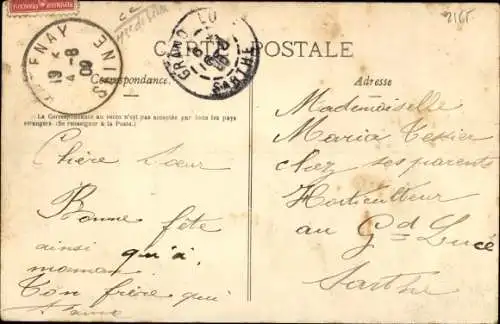 2165
CARTE POSTALE
GRAND LUCÉ
SARTHE
FONTENAY
SEINE
19
4-8
09
Correspondance.
Adresse
La Correspondance au recto n'est pas acceptée par tous les pays
étrangers. (Se renseigner à la Poste.)
Chère Sœur
Bonne fête
ainsi qu'à
maman
Ton frère qui
t'aime
Mademoiselle
Maria Tessier
chez ses parents
Horticulteur
au Gd Lucé
Sarthe